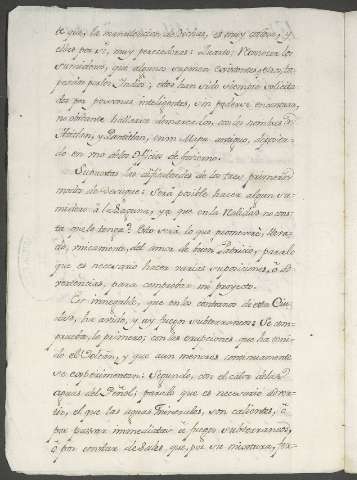 te que, la manutencion de dichas, es muy costosa, y
ellas por sí, muy perecederas: Quarto: Renovar los
sumideros, que algunos suponen existentes, y ser, ta-
pados por los Indios; estos han sido siempre solicita-
dos por personas inteligentes, sin poderse encontrar,
no obstante hallarse demarcados, con los nombres de
y Pantitlan, en un Mapa antiguo, deposita-
do en uno de los Oficios de Govierno.
Supuestas las dificultades de los tres primeros
modos de desague: Será posible hacer algun su-
midero á la Laguna, ya que en la realidad no cons-
ta que le tenga? Esto será lo que promoveré, lleva-
do, unicamente, del amor de buen Patricio, para lo
que es necesario hacer varias suposiciones, ó ad-
vertencias, para comprobar mi proyecto.
Es innegable, que en los contornos de esta Ciu-
dad, ha avido, y ay fuegos subterraneos: Se com-
prueba, lo primero, con las erupciones que ha teni-
do el Bolcán, y que aun menores continuamente
se experimentan: Segundo, con el calor de las
aguas del Peñol; para lo que es necesario adver-
tir, el que las aguas Minerales, son calientes, ó
por passar inmediatas á fuegos subterraneos,
ó por constar de Sales, que, por su mixtura, fer-